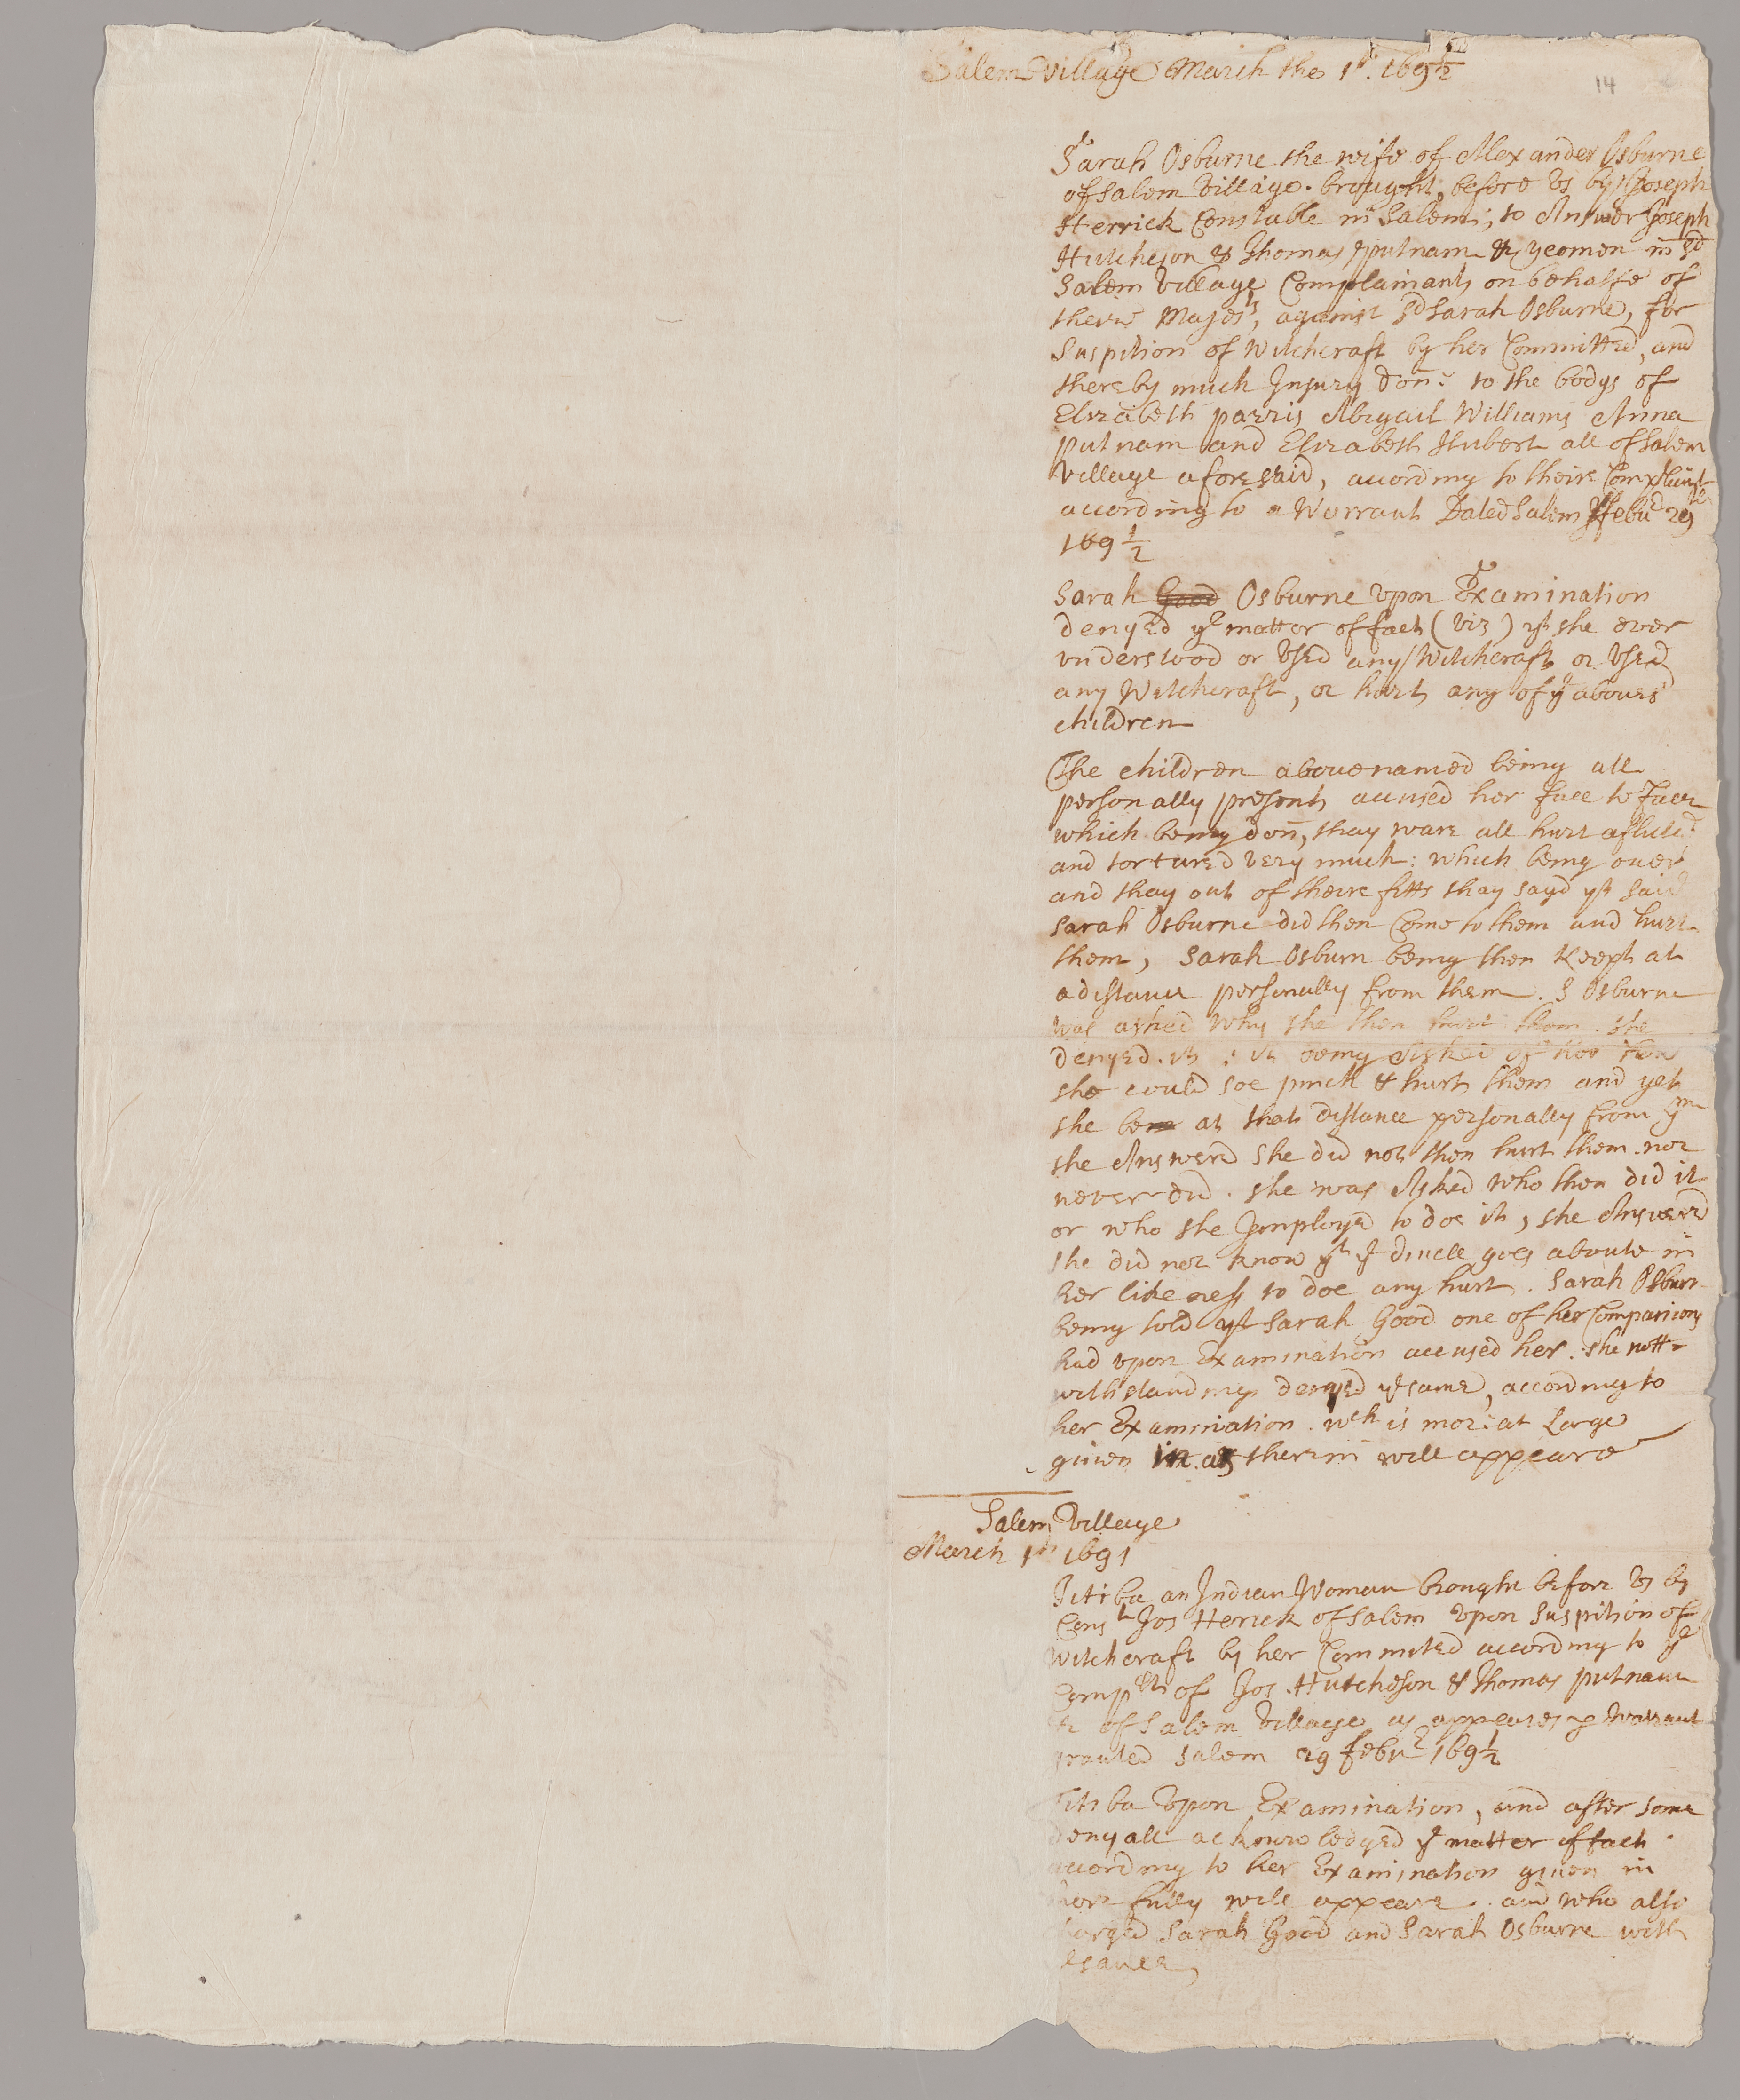 Salem Village March the 1st. 169½
14
Sarah Osburne the wife of Alexander Osburne
of Salem Village. brought before Vs by Joseph
Herrick Constable in Salem; to Answer Joseph
Hutcheson & Thomas putnam &c yeomen in sd
Salem Village Complainants on behalfe of
theire Majests, against sd Sarah Osburne, for
Suspition of Witchcraft by her Committed, and
thereby much Injury don: to the bodys of
Elizabeth parris Abigail Williams Anna
putnam and Elizabeth Hubert all of Salem
Village aforesaid, according to theire Complaint
according to a Warrant Dated Salem ffebuy 29th
169½
Sarah Good Osburne vpon Examination
denyed ye matter of fact (viz) yt she ever
vnderstood or Vsed any Witchcraft or Vsed
any Witchcraft, or hurt any of ye aboues'd
children
The children aboue named being all
personally present accused her face to face
which being don, thay ware all hurt aflicted
and tortured very much: which being ouer
and thay out of theire fitts thay sayd yt said
Sarah Osburne did then Come to them and hurt
them, Sarah Osburn being then keept at
a distance personally from them. S Osburne
was asked why she then hurt them. she
denyed it: it being Asked of her how
she could soe pinch & hurt them and yet
she be at that distance personally from ym
she Answered she did not then hurt them. nor
never did. she was Asked who then did it
or who she Imployed to doe it, she Answered
she did not know yt ye diuell goes aboute in
her likeness to doe any hurt. Sarah Osburn
being told yt Sarah Good one of her Companions
had vpon Examination accused her. she nott=
withstanding denyed ye same, according to
her Examination. wch is more at Large
giuen in as therein will appeare
Salem Village
March 1st 1691
Titiba an Indian Woman brought before Vs by
Const Jos Herick of Salem vpon Suspition of
Witchcraft by her Commited according to ye
Complt of Jos. Hutcheson & Thomas putnam
&c of Salem Village as appeares p Warrant
granted Salem 29 febuy 169½
Titiba vpon Examination, and after some
denyall acknowledged ye matter of fact.
according to her Examination giuen in
more fully will appeare. and who also
charged Sarah Good and Sarah Osburne with
ye same,